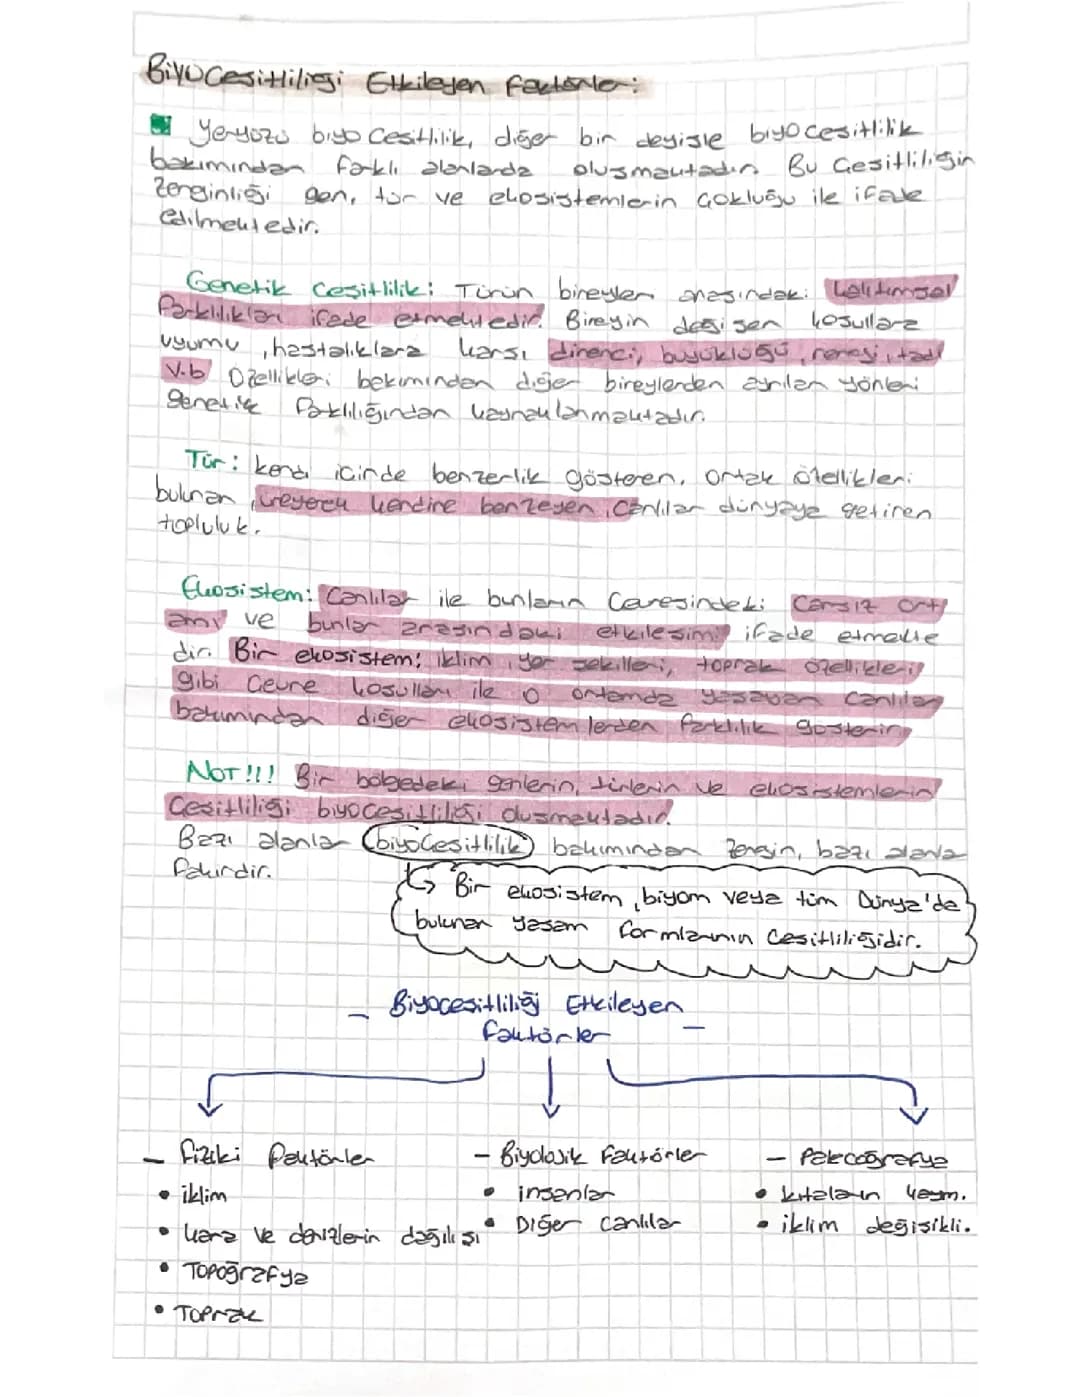 Biyoçesitliliği Etkileyen faktörler:
Yeryüzü biyo çesitlilik, diğer bir deyisle biyoçesitlilik
bakımından farklı alanlarda olusmaktadır. Bu çesitliliğin
Zenginliği gen, tür ve ekosistemlerin çokluğu ile ifade
edilmektedir.
Genetik çesitlilik: Türün bireyleri arasındaki kalıtımsal
farklılıkları ifade etmektedir. Bireyin değisen kosullara
uyumu, hastalıklara karsı direnci, büyüklüğü, rengi, tadı
v.b Özellikleri bakımından diğer bireylerden ayrılan yönleri
genetik farklılığından kaynaklanmaktadır.
Tür: kendi içinde benzerlik gösteren, ortak özellikleri
bulunan, üreyerek kendine benzeyen canlılar dünyaya getiren
topluluk.
Ekosistem: Canlılar ile bunların çevresindeki cansız ort
amı ve bunlar arasındaki etkilesimi ifade etmekte
dir. Bir ekosistem; iklim, yer sekilleri, toprak özellikleri
gibi çevre kosulları ile o ortamda yasayan canlılar
bakımından diğer ekosistemlerden farklılık gösterir.
NOT!!! Bir bölgedeki genlerin, türlerin ve ekosistemlerin
çesitliliği biyoçesitliliği olusmaktadır.
Bazı alanlar biyoçesitlilik bakımından zengin, bazı alanla
fakirdir.
Bir ekosistem, biyom veya tüm Dünya'da
bulunan yasam formlarının çesitliliğidir.
- Biyoçesitliliği Etkileyen
faktörler -
- fiziki faktörler
• iklim
• kara ve denizlerin dağılısı
• Topoğrafya
• Toprak
- Biyolojik faktörler
• insanlar
• Diğer canlılar
- Paleocoğrafya
• kıtaların kaym.
• iklim değisikli.